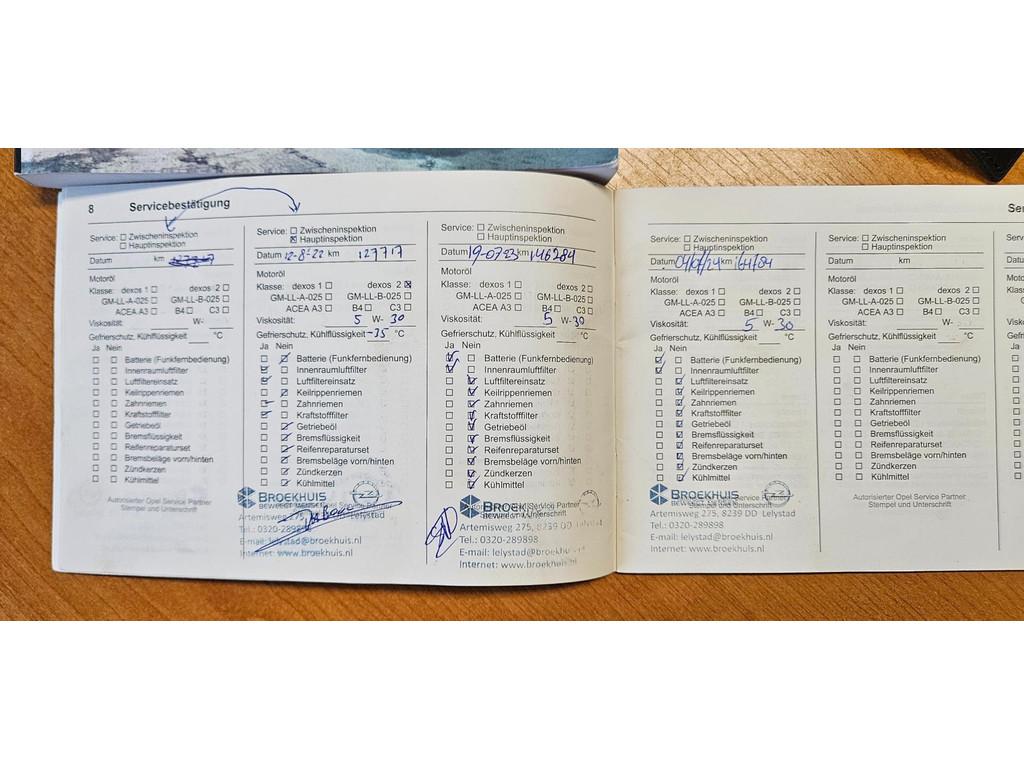 8 Servicebestätigung
Service: ☐ Zwischeninspektion
☐ Hauptinspektion
Datum km
Motoröl
Klasse: dexos 1 ☐ dexos 2 ☐
GM-LL-A-025 ☐ GM-LL-B-025 ☐
ACEA A3 ☐ B4 ☐ C3 ☐
Viskosität: W-
Gefrierschutz, Kühlflüssigkeit °C
Ja Nein
☐ ☐ Batterie (Funkfernbedienung)
☐ ☐ Innenraumluftfilter
☐ ☐ Luftfiltereinsatz
☐ ☐ Keilrippenriemen
☐ ☐ Zahnriemen
☐ ☐ Kraftstofffilter
☐ ☐ Getriebeöl
☐ ☐ Bremsflüssigkeit
☐ ☐ Reifenreparaturset
☐ ☐ Bremsbeläge vorn/hinten
☐ ☐ Zündkerzen
☐ ☐ Kühlmittel
Autorisierter Opel Service Partner
Stempel und Unterschrift
Service: ☐ Zwischeninspektion
☒ Hauptinspektion
Datum 12-8-22 km 127717
Motoröl
Klasse: dexos 1 ☐ dexos 2 ☒
GM-LL-A-025 ☐ GM-LL-B-025 ☐
ACEA A3 ☐ B4 ☐ C3 ☐
Viskosität: 5 W- 30
Gefrierschutz, Kühlflüssigkeit -35 °C
Ja Nein
☐ ☑ Batterie (Funkfernbedienung)
☑ ☐ Innenraumluftfilter
☑ ☐ Luftfiltereinsatz
☐ ☑ Keilrippenriemen
☑ ☐ Zahnriemen
☑ ☐ Kraftstofffilter
☐ ☑ Getriebeöl
☐ ☑ Bremsflüssigkeit
☐ ☑ Reifenreparaturset
☐ ☑ Bremsbeläge vorn/hinten
☐ ☑ Zündkerzen
☐ ☑ Kühlmittel
BROEKHUIS
BEWEEGT MENSEN
Artemisweg 275, Lelystad
Tel.: 0320-289898
E-mail: lelystad@broekhuis.nl
Internet: www.broekhuis.nl
Service: ☐ Zwischeninspektion
☐ Hauptinspektion
Datum 19-07-23 km 146284
Motoröl
Klasse: dexos 1 ☐ dexos 2 ☐
GM-LL-A-025 ☐ GM-LL-B-025 ☐
ACEA A3 ☐ B4 ☐ C3 ☐
Viskosität: 5 W- 30
Gefrierschutz, Kühlflüssigkeit °C
Ja Nein
☑ ☐ Batterie (Funkfernbedienung)
☑ ☐ Innenraumluftfilter
☐ ☑ Luftfiltereinsatz
☐ ☑ Keilrippenriemen
☐ ☑ Zahnriemen
☐ ☑ Kraftstofffilter
☐ ☑ Getriebeöl
☐ ☑ Bremsflüssigkeit
☐ ☑ Reifenreparaturset
☐ ☑ Bremsbeläge vorn/hinten
☐ ☑ Zündkerzen
☐ ☑ Kühlmittel
Service Partner
Unterschrift
Artemisweg 275, 8239 DD Lelystad
Tel.: 0320-289898
E-mail: lelystad@broekhuis.nl
Internet: www.broekhuis.nl
Service: ☐ Zwischeninspektion
☐ Hauptinspektion
Datum 04/07/24 km 164184
Motoröl
Klasse: dexos 1 ☐ dexos 2 ☐
GM-LL-A-025 ☐ GM-LL-B-025 ☐
ACEA A3 ☐ B4 ☐ C3 ☐
Viskosität: 5 W- 30
Gefrierschutz, Kühlflüssigkeit °C
Ja Nein
☑ ☐ Batterie (Funkfernbedienung)
☑ ☐ Innenraumluftfilter
☐ ☑ Luftfiltereinsatz
☐ ☑ Keilrippenriemen
☐ ☑ Zahnriemen
☐ ☑ Kraftstofffilter
☐ ☑ Getriebeöl
☐ ☑ Bremsflüssigkeit
☐ ☑ Reifenreparaturset
☐ ☑ Bremsbeläge vorn/hinten
☐ ☑ Zündkerzen
☐ ☑ Kühlmittel
BROEKHUIS
Stempel und Unterschrift
Artemisweg 275, 8239 DD Lelystad
Tel.: 0320-289898
E-mail: lelystad@broekhuis.nl
Internet: www.broekhuis.nl
Service: ☐ Zwischeninspektion
☐ Hauptinspektion
Datum km
Motoröl
Klasse: dexos 1 ☐ dexos 2 ☐
GM-LL-A-025 ☐ GM-LL-B-025 ☐
ACEA A3 ☐ B4 ☐ C3 ☐
Viskosität: W-
Gefrierschutz, Kühlflüssigkeit °C
Ja Nein
☐ ☐ Batterie (Funkfernbedienung)
☐ ☐ Innenraumluftfilter
☐ ☐ Luftfiltereinsatz
☐ ☐ Keilrippenriemen
☐ ☐ Zahnriemen
☐ ☐ Kraftstofffilter
☐ ☐ Getriebeöl
☐ ☐ Bremsflüssigkeit
☐ ☐ Reifenreparaturset
☐ ☐ Bremsbeläge vorn/hinten
☐ ☐ Zündkerzen
☐ ☐ Kühlmittel
Autorisierter Opel Service Partner
Stempel und Unterschrift